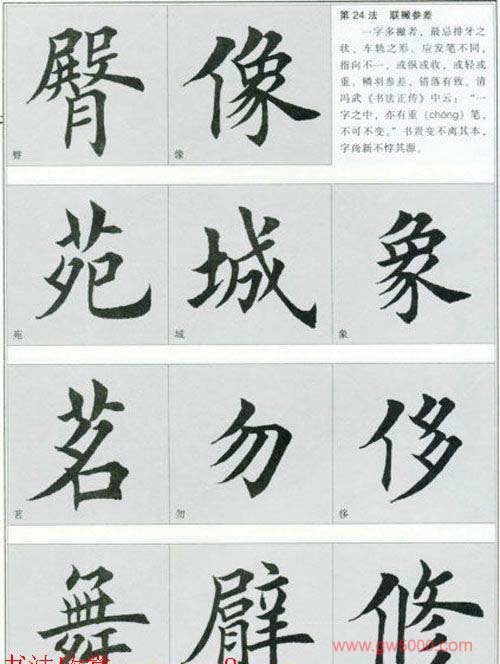 第24法 联撇参差
一字多撇者，最忌排牙之
状、车轨之形。应发笔不同，
指向不一，或纵或收，或轻或
重。鳞羽参差，错落有致。清
冯武《书法正传》中云：“一
字之中，亦有重（chóng）笔，
不可不变。”书贵变不离其本，
字尚新不悖其源。
臀 像
臀 像
苑 城 象
苑 城 象
茗 勿 侈
茗 勿 侈
舞 臂 修
www.gw5000.com